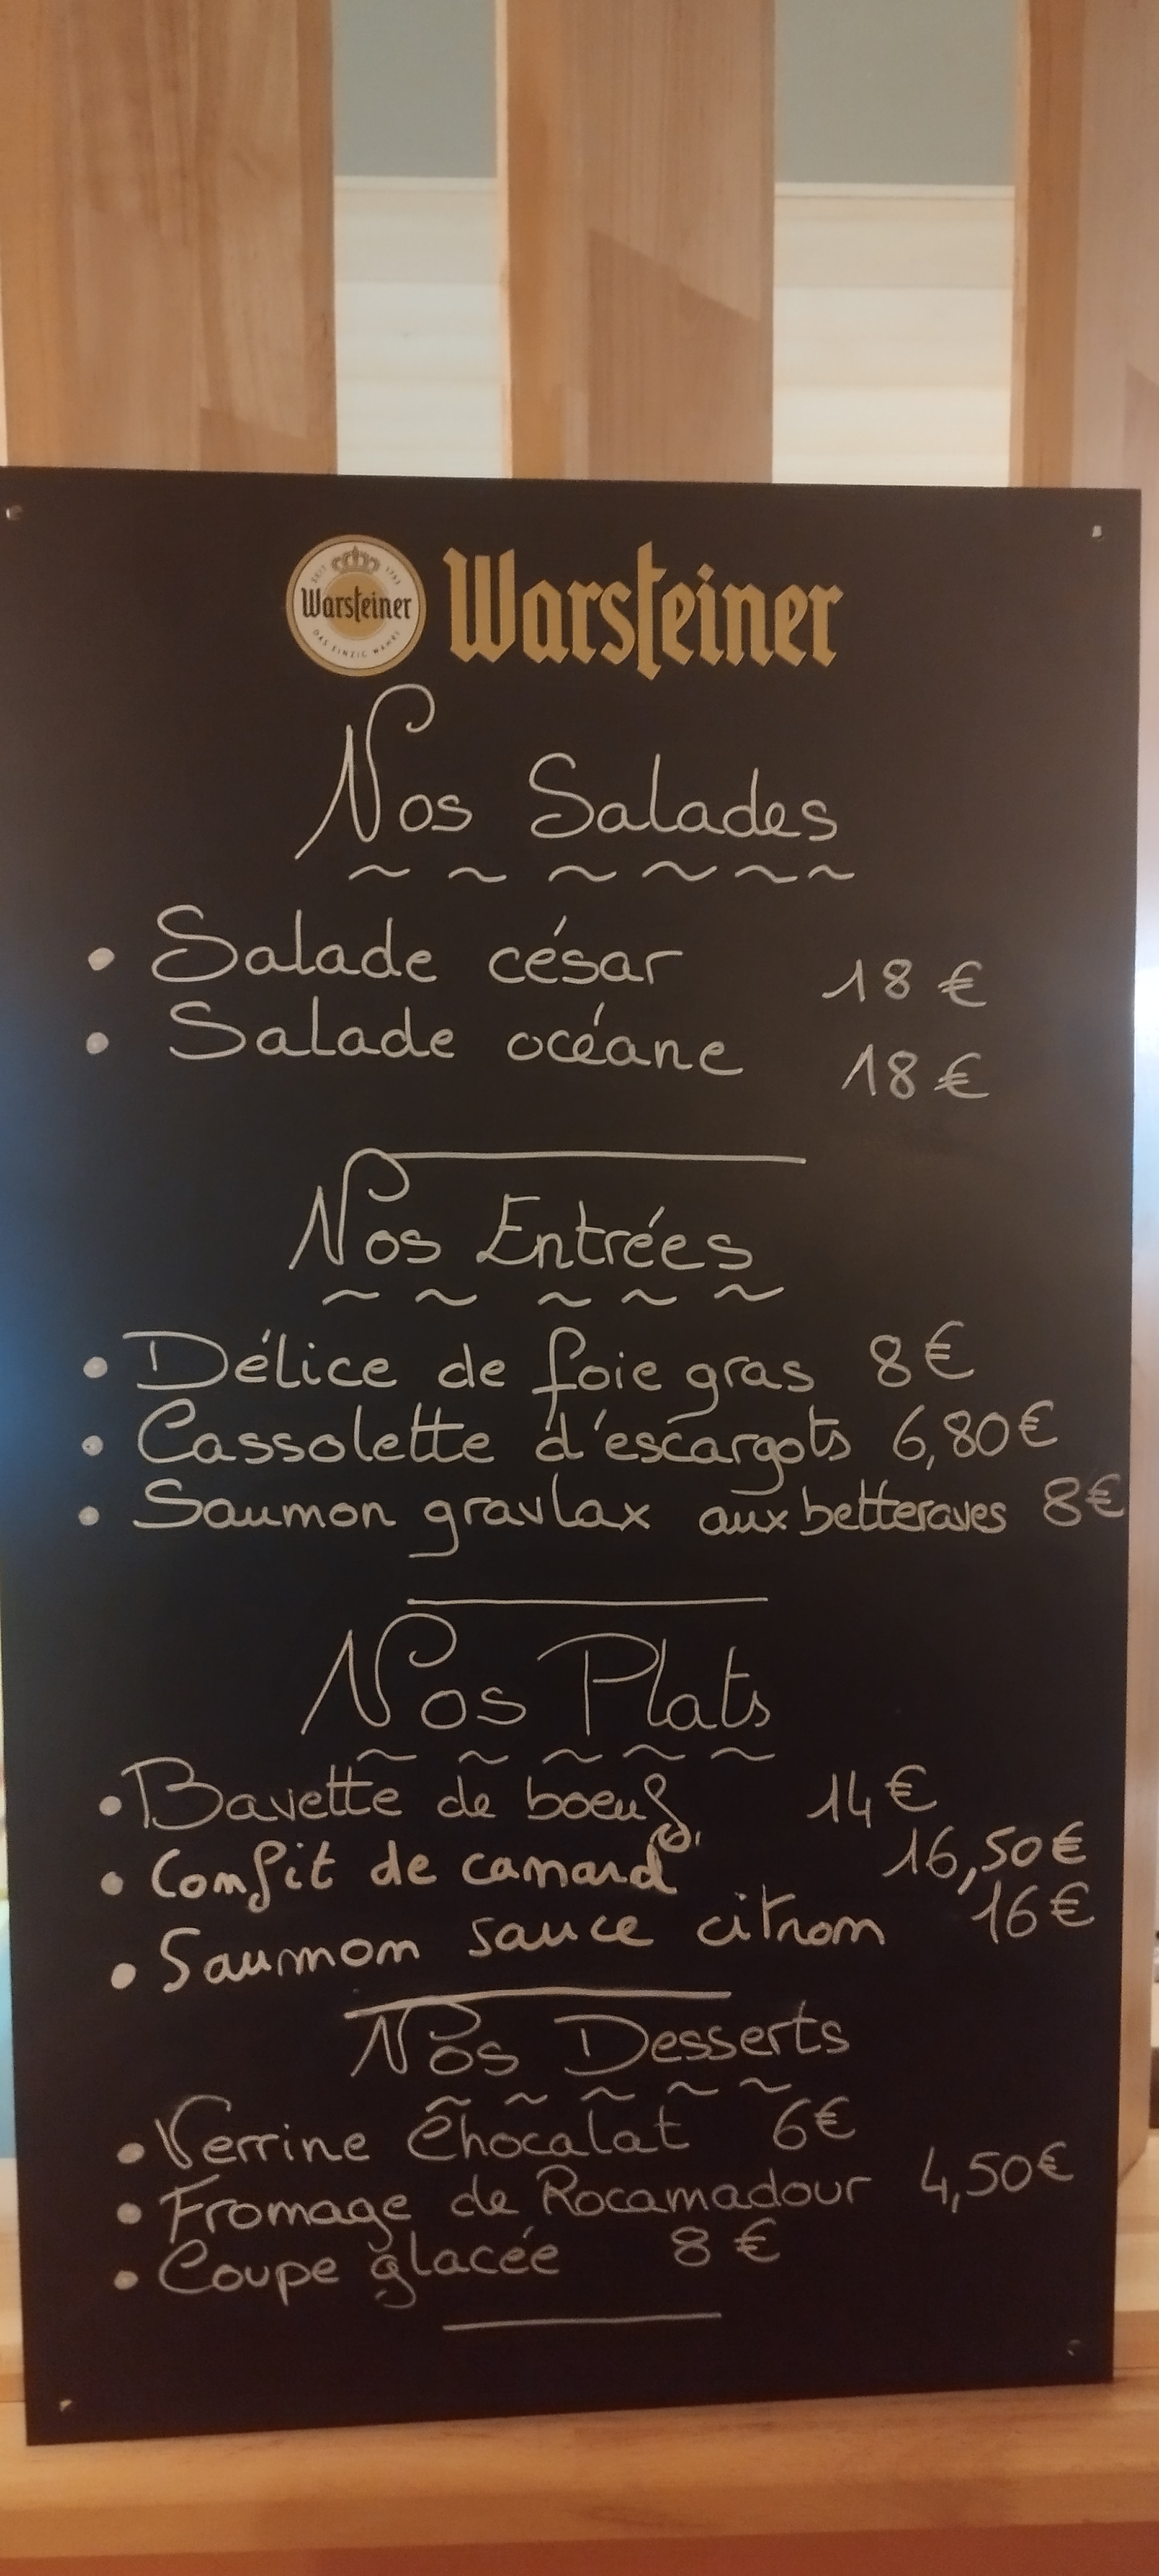 SEIT 1753
Warsteiner
DAS EINZIG WAHRE
Warsteiner
Nos Salades
~ ~ ~ ~ ~ ~
• Salade césar 18 €
• Salade océane 18 €
Nos Entrées
~ ~ ~ ~ ~
• Délice de foie gras 8 €
• Cassolette d'escargots 6,80 €
• Saumon gravlax aux betteraves 8 €
Nos Plats
~ ~ ~ ~ ~
• Bavette de boeuf 14 €
• Confit de canard 16,50 €
• Saumon sauce citron 16 €
Nos Desserts
~ ~ ~ ~ ~
• Verrine Chocolat 6 €
• Fromage de Rocamadour 4,50 €
• Coupe glacée 8 €